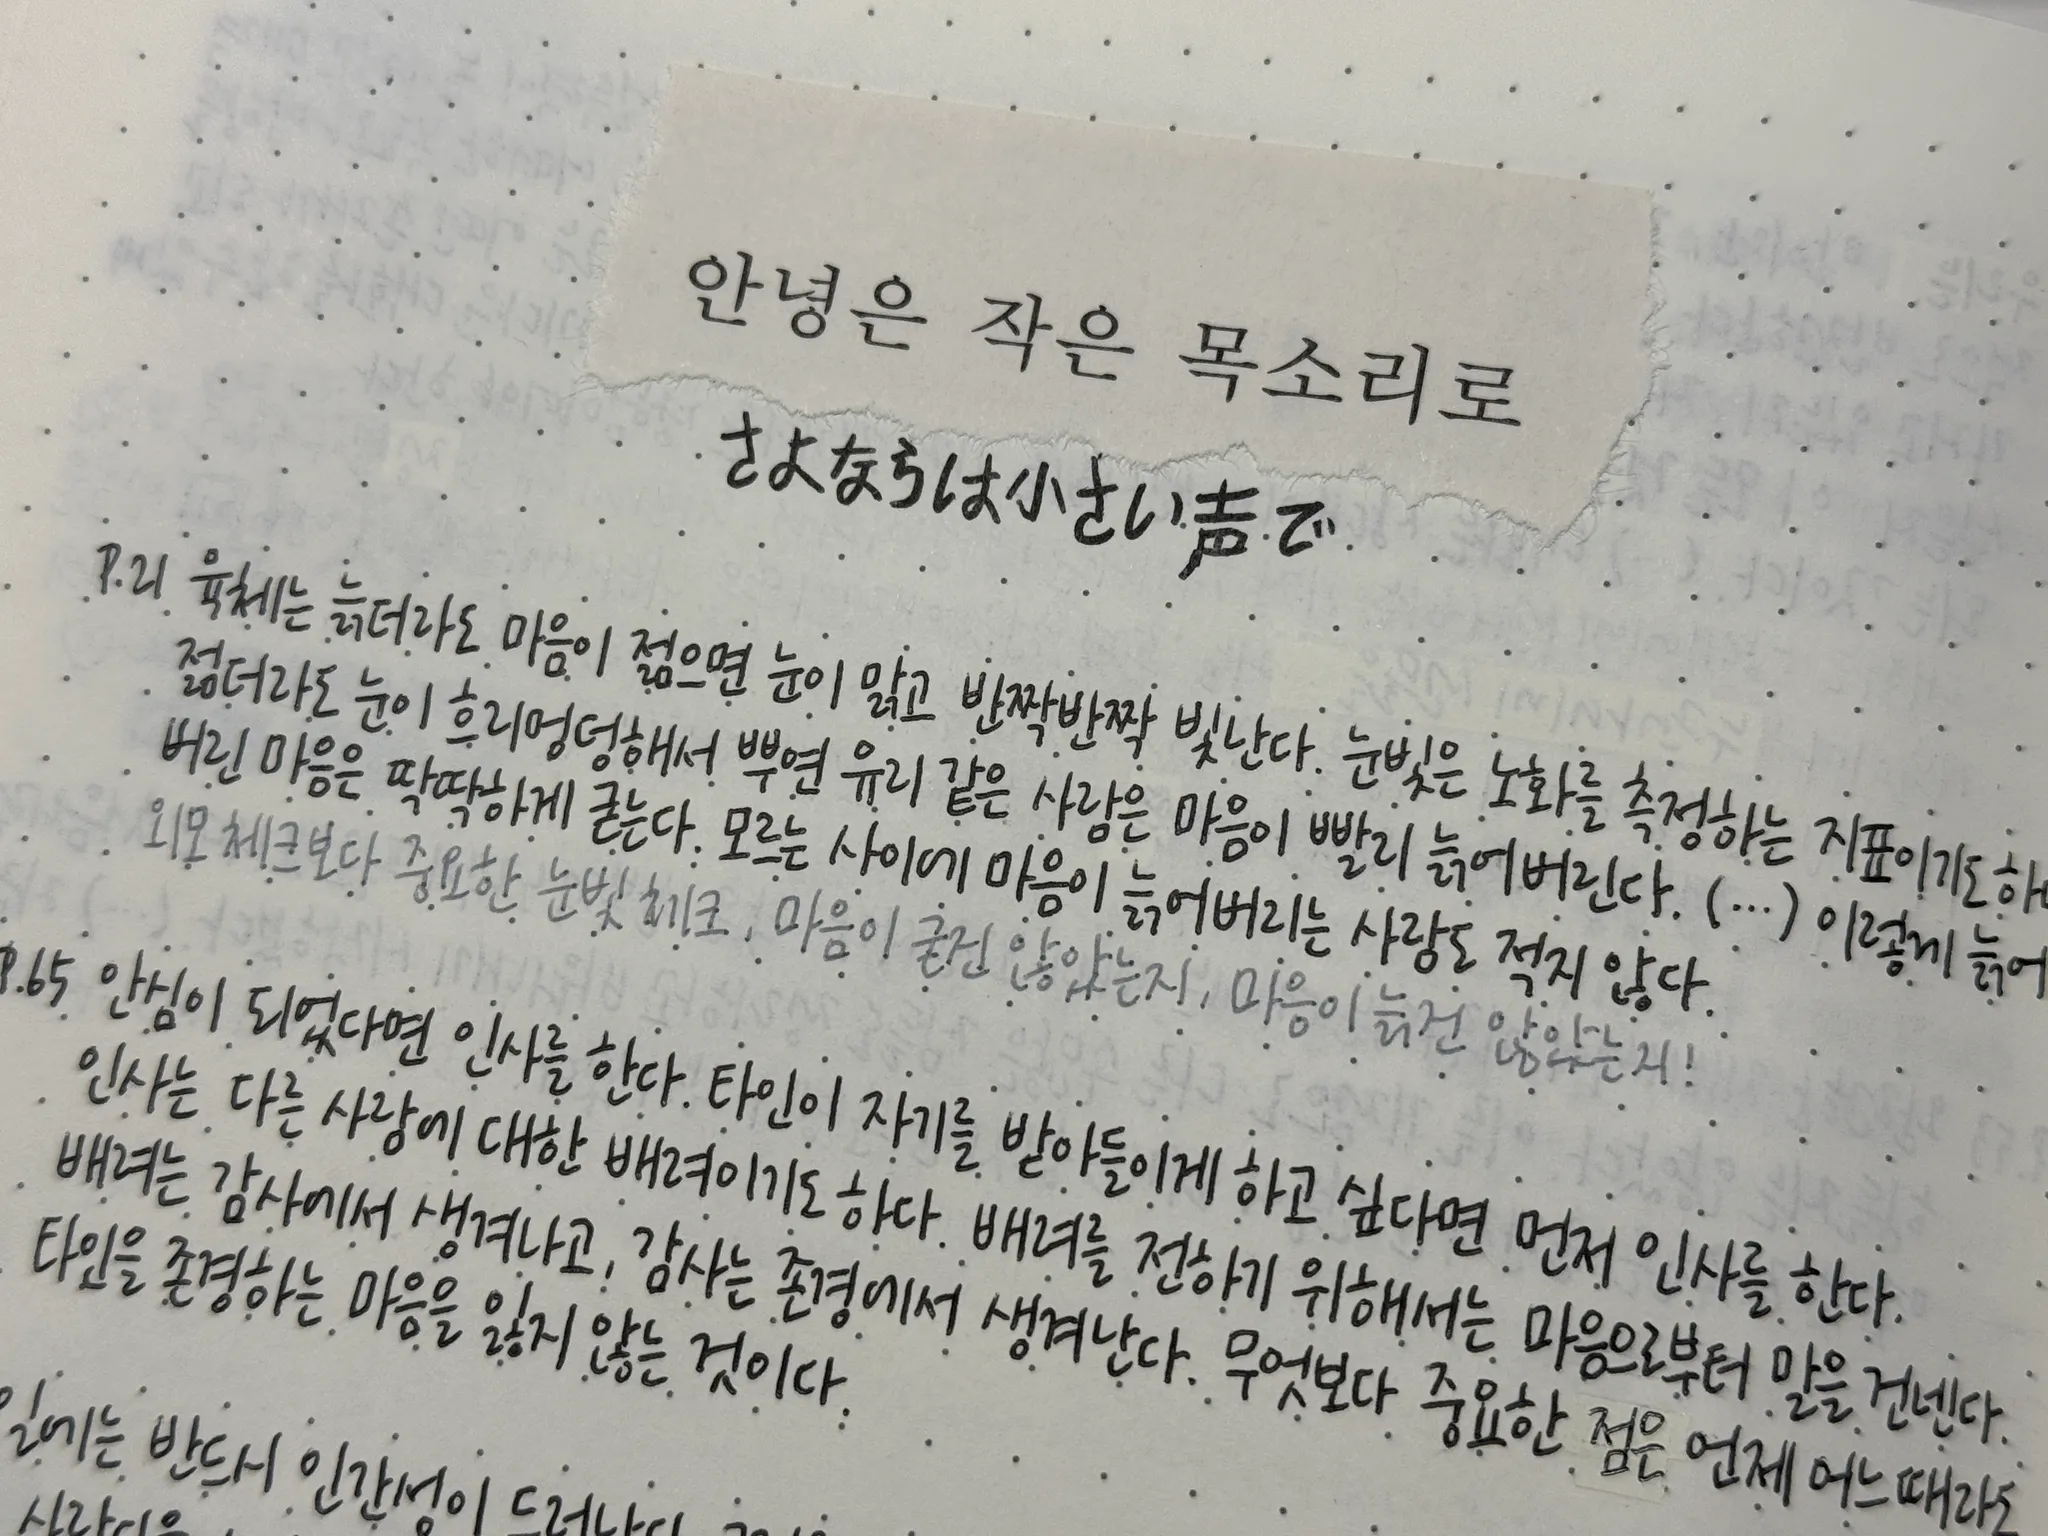 안녕은 작은 목소리로
さよならは小さい声で
P.21 육체는 늙더라도 마음이 젊으면 눈이 맑고 반짝반짝 빛난다. 눈빛은 노화를 측정하는 지표이기도 하
젊더라도 눈이 흐리멍덩해서 뿌연 유리 같은 사람은 마음이 빨리 늙어버린다. (…) 이렇게 늙어
버린 마음은 딱딱하게 굳는다. 모르는 사이에 마음이 늙어버리는 사람도 적지 않다.
외모 체크보다 중요한 눈빛 체크, 마음이 굳진 않았는지, 마음이 늙진 않았는지!
P.65 안심이 되었다면 인사를 한다. 타인이 자기를 받아들이게 하고 싶다면 먼저 인사를 한다.
인사는 다른 사람에 대한 배려이기도 하다. 배려를 전하기 위해서는 마음으로부터 말을 건넨다.
배려는 감사에서 생겨나고, 감사는 존경에서 생겨난다. 무엇보다 중요한 점은 언제 어느때라도
타인을 존경하는 마음을 잃지 않는 것이다.
일에는 반드시 인간성이 드러난다.